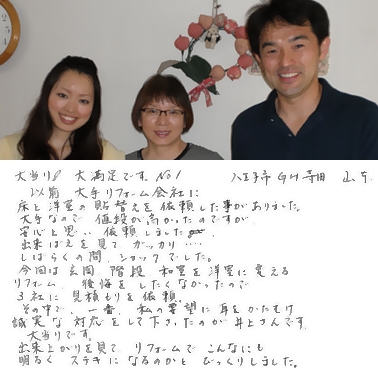 大当り!! 大満足です。No1
八王子市
以前 大手リフォーム会社に
床と洋室の貼替えを依頼した事がありました。
大手なので 値段が高かったのですが
安心と思い 依頼しました
出来ばえを見て ガッカリ・・・・
しばらくの間 ショックでした。
今回は 玄関 階段 和室を洋室に変える
リフォーム 後悔をしたくなったので
3社に 見積もりを依頼。
その中で 一番 私の要望に耳をかたむけ
誠実な対応をして下さったのが 井上さんです。
大当りです。
出来上がりを見て リフォームで こんなにも
明るく ステキに なるのかと びっくりしました。